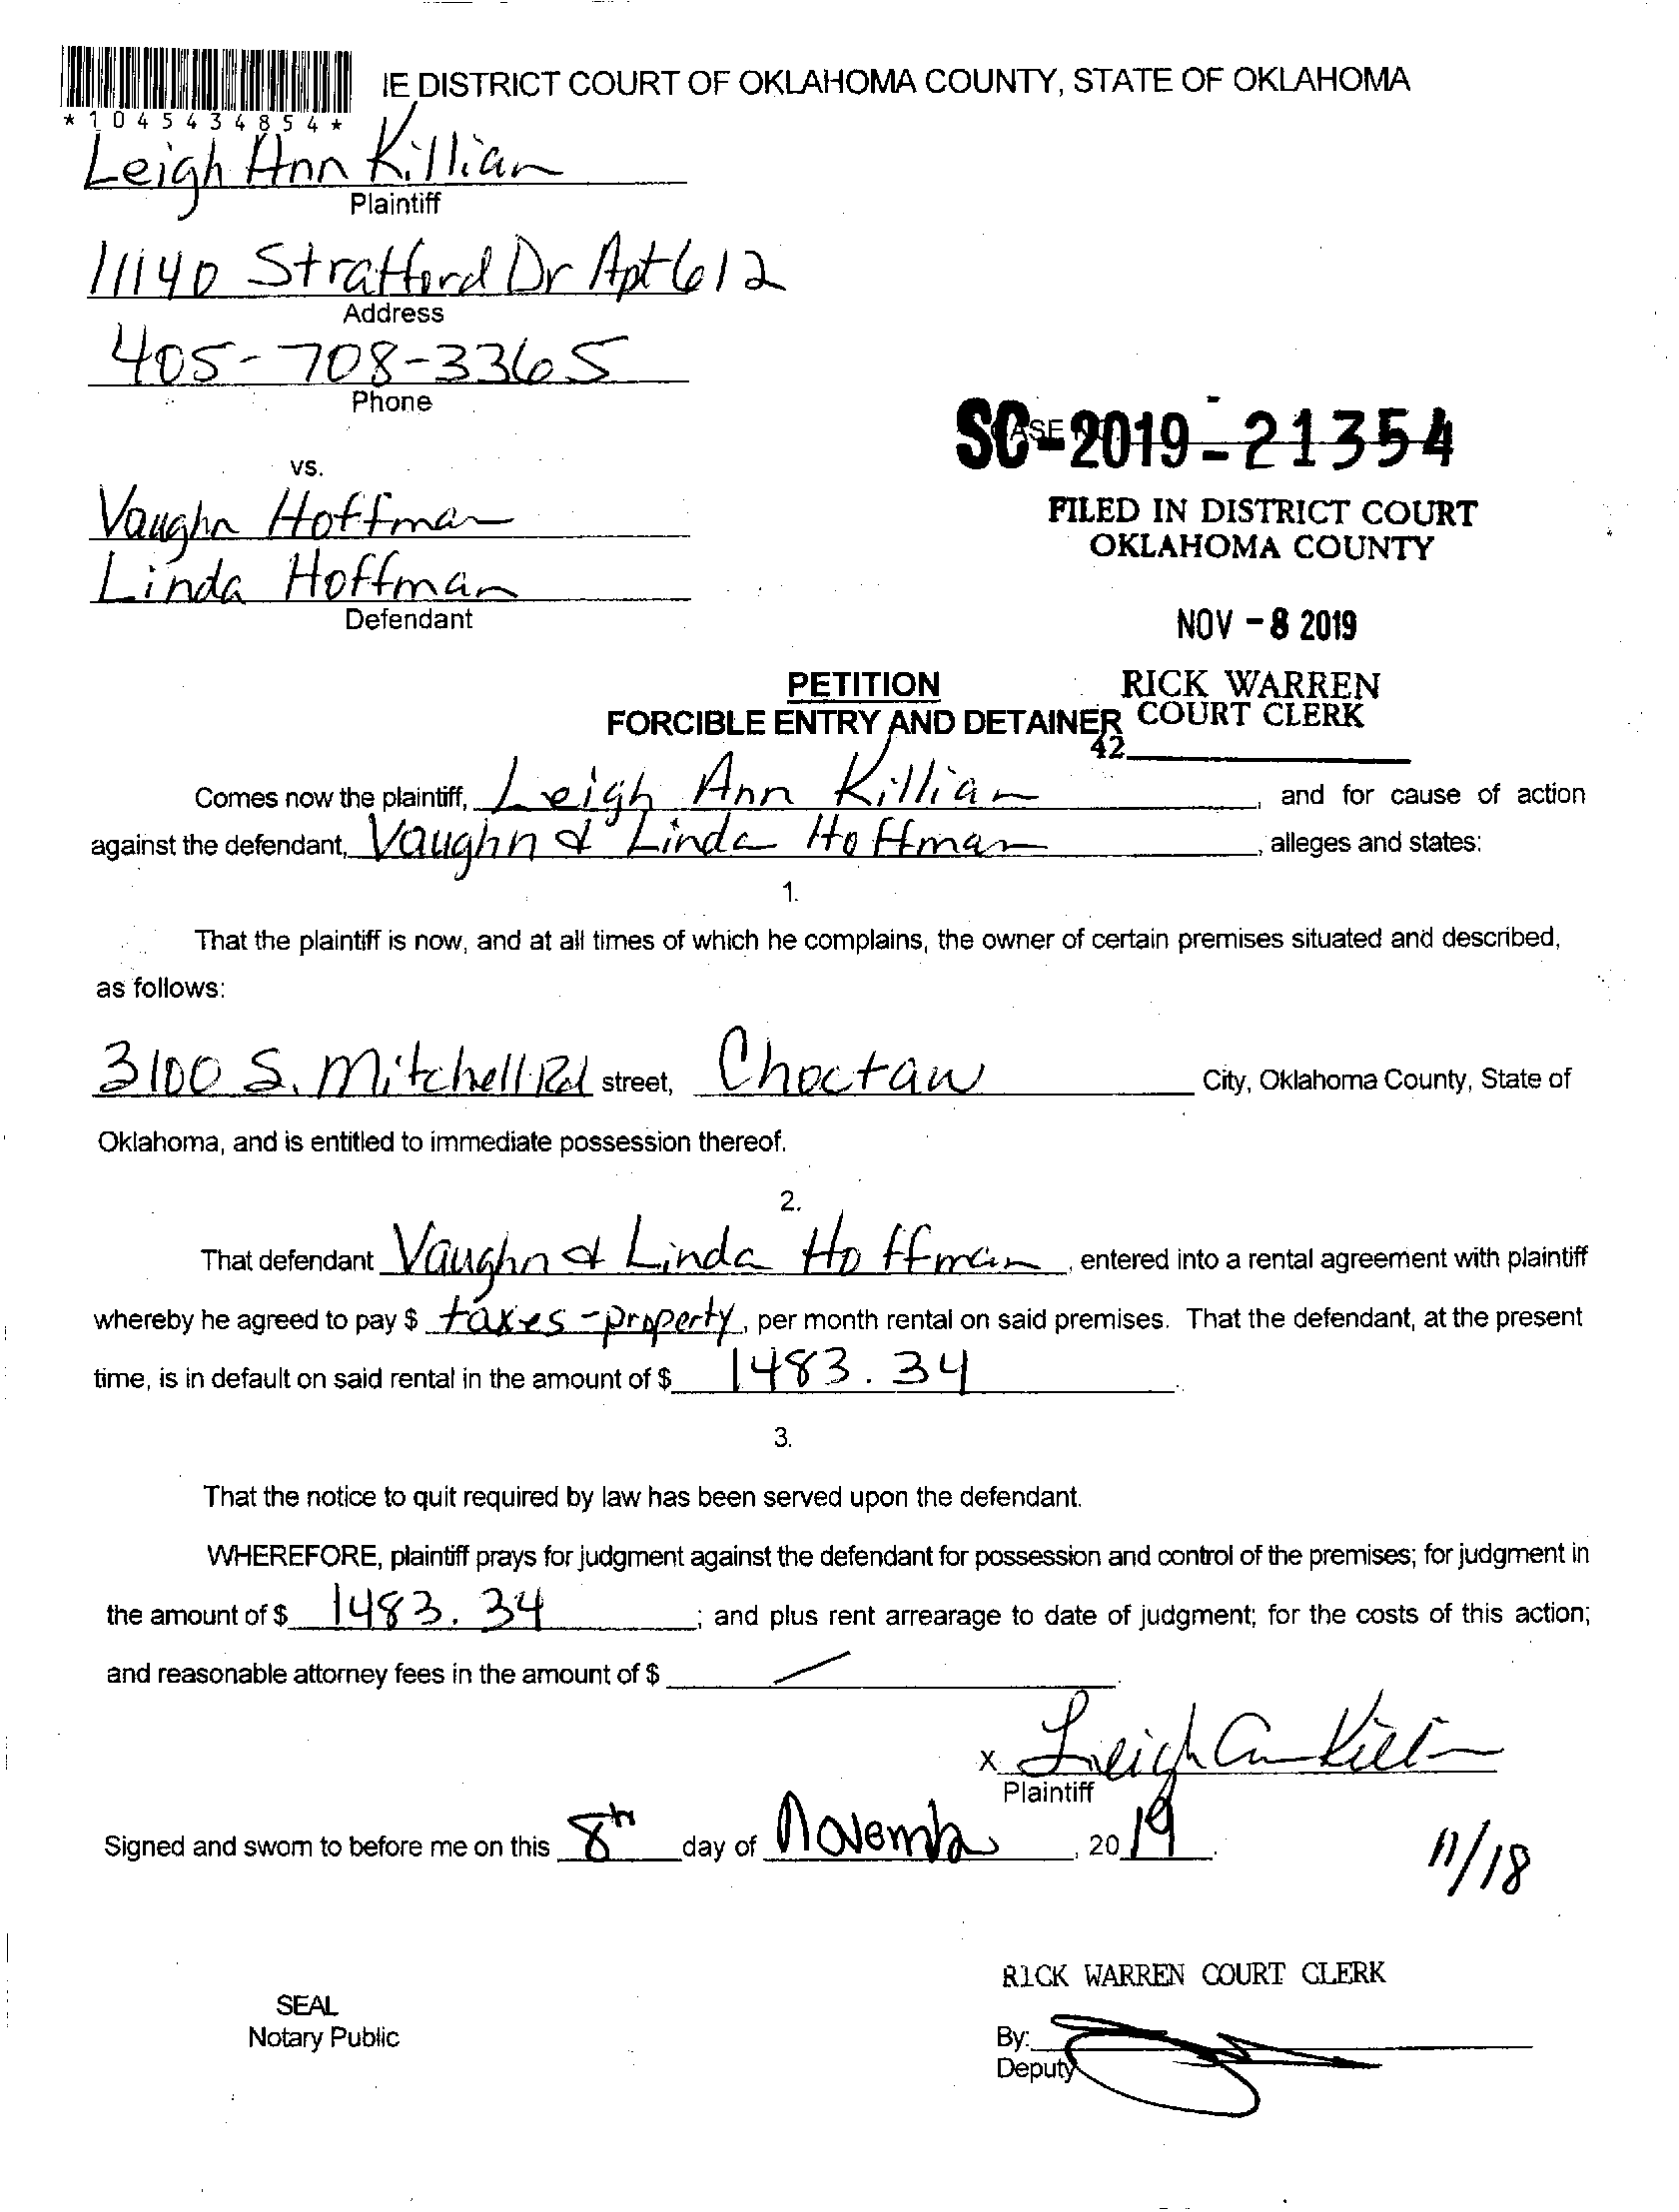 IE DISTRICT COURT OF OKLAHOMA COUNTY, STATE OF OKLAHOMA
*1045434854*
Leigh Ann Killian
Plaintiff
11140 Stratford Dr Apt 612
Address
405-708-3365
Phone
SC-2019-21354
vs.
FILED IN DISTRICT COURT
OKLAHOMA COUNTY
Vaughn Hoffman
Linda Hoffman
Defendant
NOV - 8 2019
PETITION
RICK WARREN
FORCIBLE ENTRY AND DETAINER
COURT CLERK
42
Comes now the plaintiff, Leigh Ann Killian, and for cause of action
against the defendant, Vaughn & Linda Hoffman, alleges and states:
1.
That the plaintiff is now, and at all times of which he complains, the owner of certain premises situated and described,
as follows:
3100 S. Mitchell Rd street, Choctaw City, Oklahoma County, State of
Oklahoma, and is entitled to immediate possession thereof.
2.
That defendant Vaughn & Linda Hoffman, entered into a rental agreement with plaintiff
whereby he agreed to pay $ taxes - property, per month rental on said premises. That the defendant, at the present
time, is in default on said rental in the amount of $ 1483.34.
3.
That the notice to quit required by law has been served upon the defendant.
WHEREFORE, plaintiff prays for judgment against the defendant for possession and control of the premises; for judgment in
the amount of $ 1483.34; and plus rent arrearage to date of judgment; for the costs of this action;
and reasonable attorney fees in the amount of $ /.
x Leigh Ann Killian
Plaintiff
Signed and sworn to before me on this 8th day of November, 2019.
11/18
RICK WARREN COURT CLERK
SEAL
Notary Public
By:
Deputy